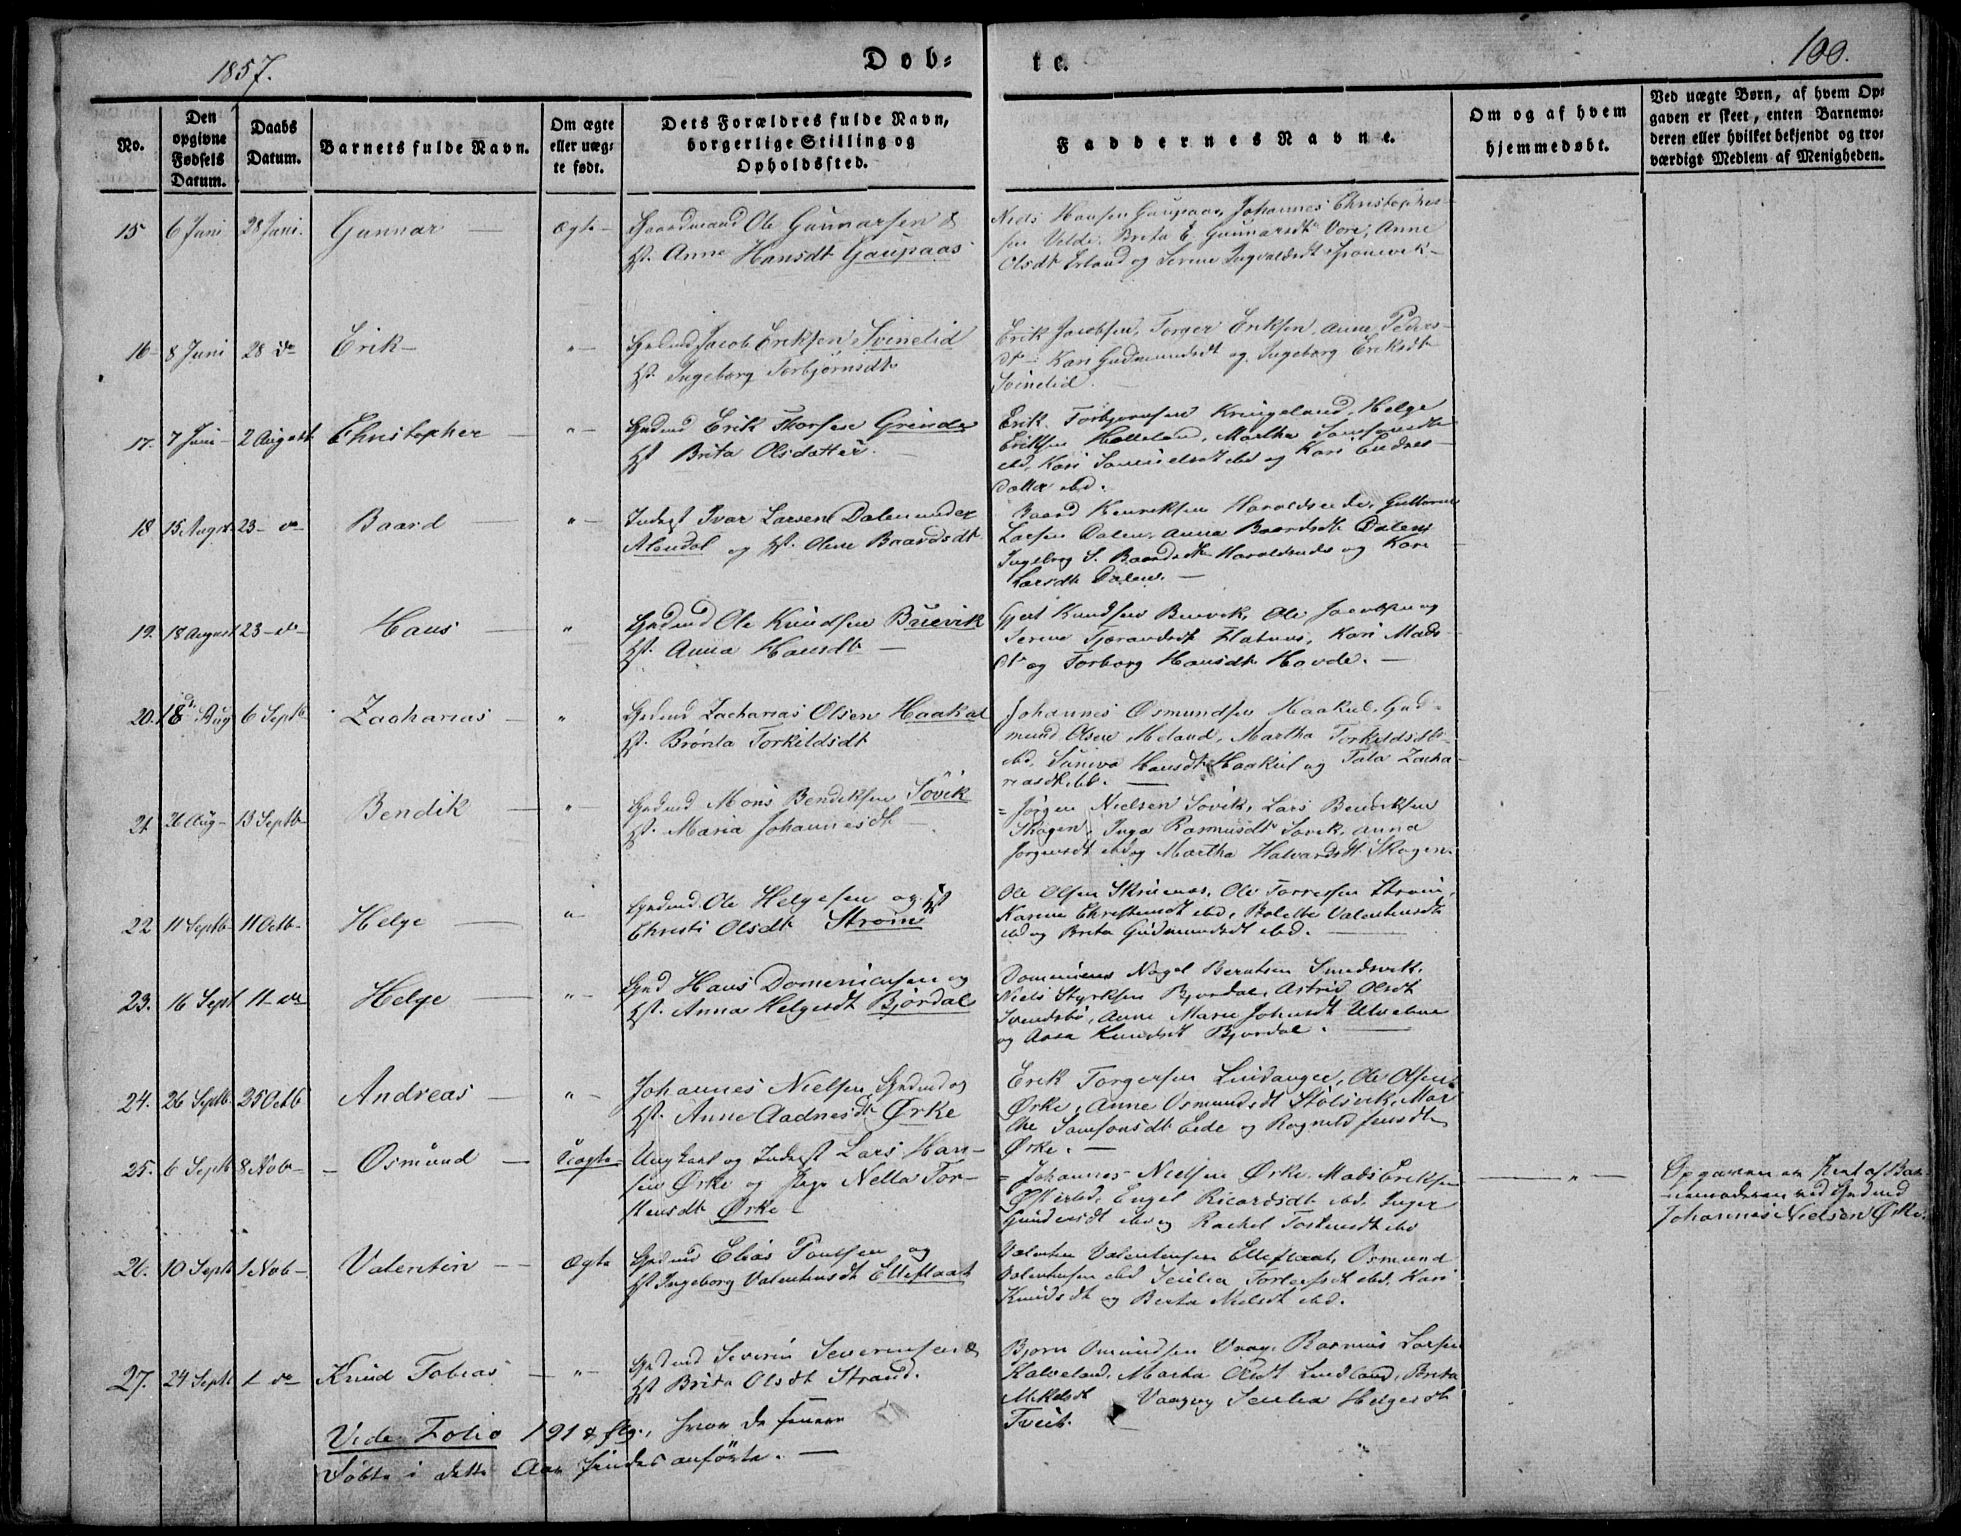 1857.
Døb-
te.
100.
No.
Den
opgivne
Fødsels
Datum.
Daabs
Datum.
Barnets fulde Navn.
Om ægte
eller uæg-
te født.
Dets Forældres fulde Navn,
borgerlige Stilling og
Opholdssted.
Faddernes Navne.
Om og af hvem
hjemmedøbt.
Ved uægte Børn, af hvem Op-
gaven er skeet, enten Barnemo-
deren eller hvilket bekjendt og tro-
værdigt Medlem af Menigheden.
15 6 Juni 28 Juni. Gunnar — Ægte —
Gaardmand Ole Gunnarsen &
H. Anne Hansdt Gaupaas
Niels Hansen Gaupaas, Johannes Christophers-
sen Velde, Brita E. Gunnarsdt Vore, Anne
Olsdt Erland og Serine Ingvaldsdt Spanevik —
16 — 8 Juni 28 do Erik — " —
Grdmd Jacob Eriksen Svinelid
H. Ingeborg Torbjørnsdt
Erik Jacobsen, Torger Eriksen, Anne Peders-
dt — Kari Gudmundsdt og Ingeborg Eriksdt
Svinelid.
17. 7 Juni — 2 August Christopher — " —
Grdmd Erik Thorsen Grinde
H. Brita Olsdatter.
Erik Torbjørnsen Kringeland, Helge
Eriksen Holleland, Martha Samsonsdt
ibd, Kari Samuelsdt ibd og Kari Endres-
datter ibd.
18 15 August 23 — do — Baard — " —
Inderst Ivar Larsen Dalen under
Alendal og H. Oline Baardsdt
Baard Henriksen Haraldseide, Guttorm
Larsen Dalen, Anna Baardsdt Dalen
Ingeborg S. Baardsdt Haraldseide og Kari
Larsdt Dalen. —
19. 18 August 23 — do — Hans — "
Grdmd Ole Knudsen Buevik
H. Anna Hansdt —
Gjert Knudsen Buevik, Ole Jacobsen og
Serine Tjerandsdt Flatnes, Kari Mads-
dt og Torborg Hansdt Hovde. —
20. 18 de Aug 6 Septb Zacharias — "
Grdmd Zacharias Olsen Haakul
H. Brønla Torkildsdt
Johannes Osmundsen Haakul, Gud-
mund Olsen Meland, Martha Torkildsdt
ibd, Siniva Hansdt Haakul og Tala Zacha-
riasdt ibd. —
21 26 Aug — 13 Septb Bendik — " —
Grdmd Mons Bendiksen Søvik
H. Maria Johannesdt
= Jørgen Nielsen Søvik, Lars Bendiksen
Skogen, Inga Rasmusdt Søvik, Anna
Jørgensdt ibd og Martha Halvardsdt Skogen.
22 11 Septb — 11 Octb — Helge — "
Grdmd Ole Helgesen og H.
Christi Olsdt Strøm
Ole Olsen Skruenes, Ole Torressen Strøm,
Karine Christensdt ibd, Bolette Valentinsdt
ibd og Brita Gudmundsdt ibd. —
23. 16 Sept 11 — do Helge — " —
Grd Hans Domenicussen og
H. Anna Helgesdt Bjordal
Domenicus Nagel Berntsen Smedsvik,
Niels Styrksen Bjordal, Astrid Olsdt
Svendsbø, Anne Marie Johnsdt Utvebne —
og Aasa Knudsdt Bjordal.
24. 26 Septb. 25 Octb Andreas — " —
Johannes Nielsen Grdmd og
H. Anne Aadnesdt Ørke
Erik Torgersen Lindanger, Ole Olsen
Ørke, Anne Osmundsdt Stølsvik, Mar
the Samsonsdt Eide og Ragnild Jensdt
Ørke. —
25. 6 Septb 8 Nob — Osmund — Uægte
Ungkarl og Inderst Lars Han-
sen Ørke og Pige Nella Tor-
stensdt Ørke —
= Johannes Nielsen Ørke, Mads Eriksen
Østerbø, Engel Ricardsdt ibd, Inger
Gundersdt ibd og Rachel Tostensdt ibd
— " —
Opgaven er skeet af Bar-
nemoderen ved Grdmd
Johannes Nielsen Ørke.
26. 10 Septb 1 Nob — Valentin — Ægte
Grdmd Elias Poulsen og
H. Ingeborg Valentinsdt Elleflaat
Valentin Valentinsen Elleflaat, Osmund
Valentinsen ibd Secilia Torleifsdt ibd, Kari
Knudsdt og Berta Nielsdt ibd.
27. 24 Septb 1 — do Knud Tobias — " —
Grdmd Severin Severinsen &
H. Brita Olsdt Strand.
Bjørn Omundsen Vaag, Rasmus Larsen
Halveland, Martha Olsdt Lindland, Brita
Mikelsdt Vaag og Secilia Helgesdt
Tveit.
Vide Folio 191 & flg., hvor de senere
Døbte i dette Aar findes anførte. —